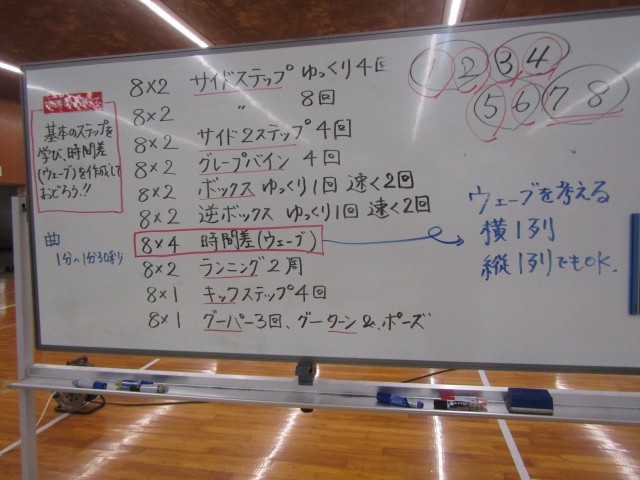 基本のステップを
学び、時間差
(ウェーブ)を作成して
おどろう!!
曲
1分〜1分30秒
8×2 サイドステップ ゆっくり4回
8×2 〃 8回
8×2 サイド2ステップ 4回
8×2 グレープバイン 4回
8×2 ボックス ゆっくり1回 速く2回
8×2 逆ボックス ゆっくり1回 速く2回
8×4 時間差(ウェーブ)
8×2 ランニング2周
8×1 キックステップ4回
8×1 グーパー3回、グーターン&ポーズ
1 2 3 4
5 6 7 8
ウェーブを考える
横1列
縦1列でもOK.